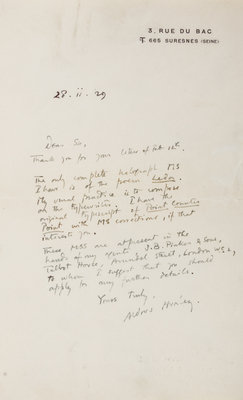 3, RUE DU BAC
T 665 SURESNES (SEINE)
28. ii. 29
Dear Sir,
Thank you for your letter of Feb 12th.
The only complete holograph MS
I have is of the poem Leda.
My usual practice is to compose
on the typewriter. I have the
original typescript of Point Counter
Point with MS corrections, if that
interests you.
These MSS are at present in the
hands of my agents J.B. Pinker & Sons,
Talbot House, Arundel Street, London W.C.2,
to whom I suggest that you should
apply for any further details.
Yours truly,
Aldous Huxley.